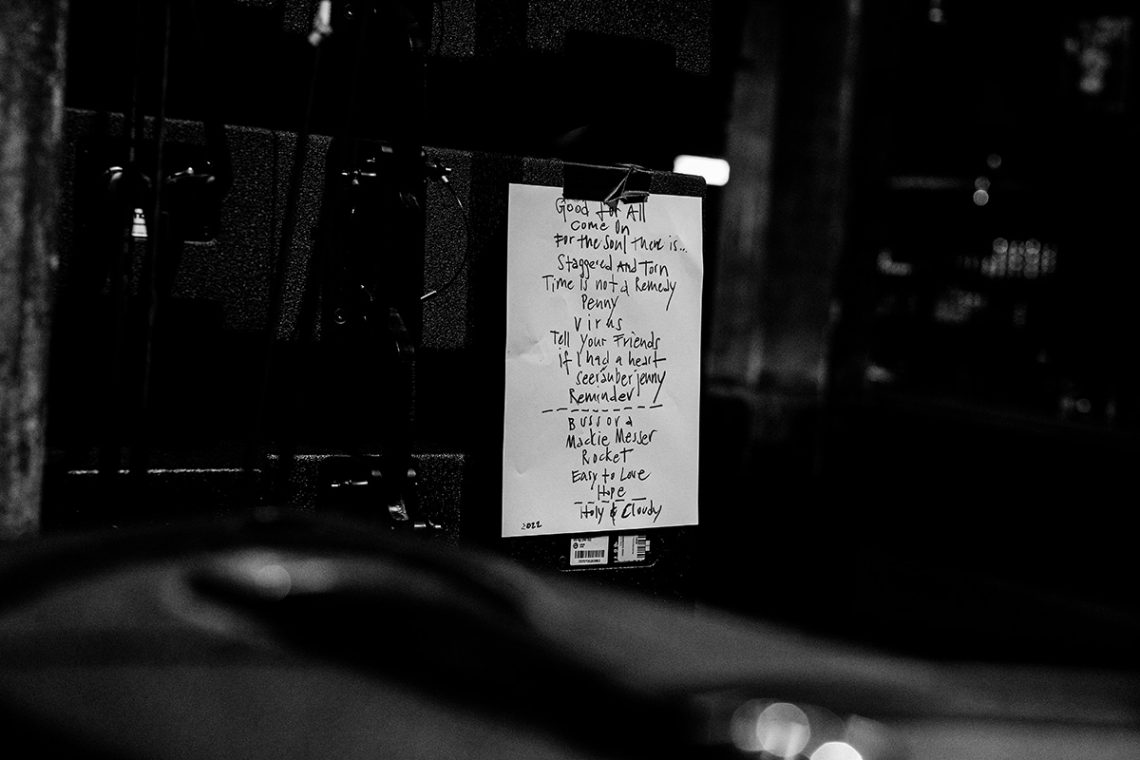 Good for All
Come On
For the Soul There is...
Staggered And Torn
Time is not a Remedy
Penny
Virus
Tell Your Friends
if I had a heart
seeräuber jenny
Reminder
Bussora
Mackie Messer
Rocket
Easy to Love
Hope
Holy & Cloudy
2022